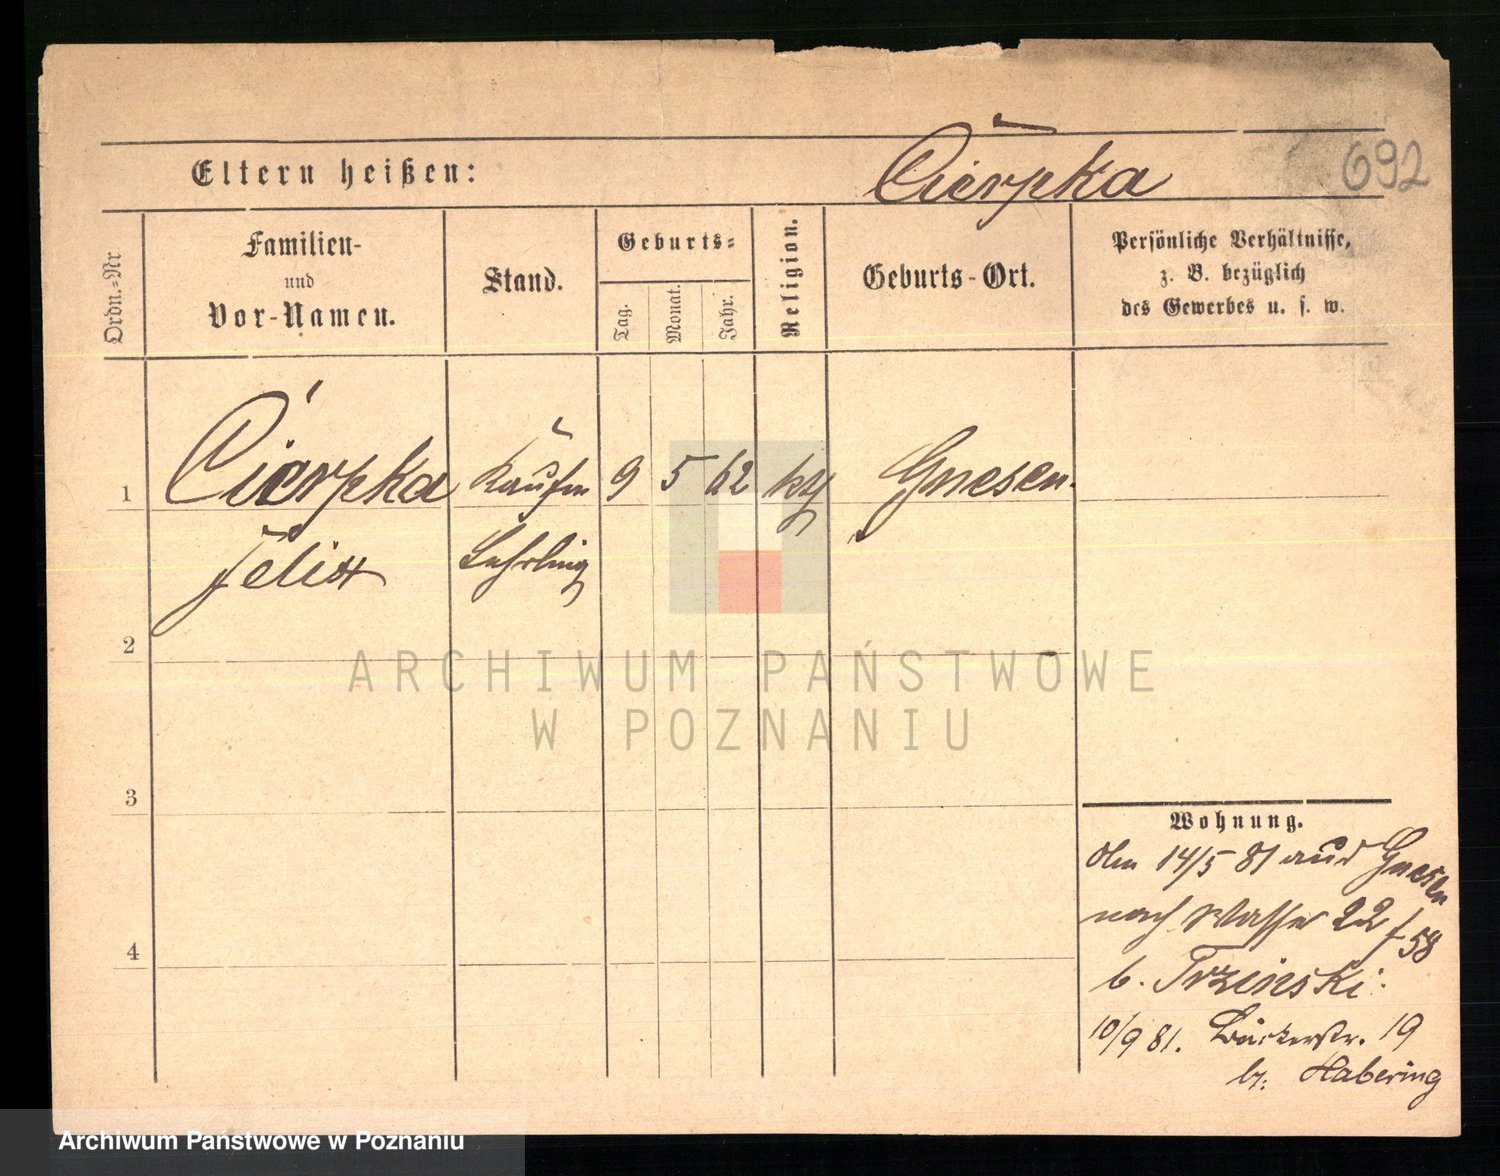 Cierpka
692
Eltern heißen:
Ordn.=Nr
Familien-
und
Vor-Namen.
Stand.
Geburts=
Tag.
Monat.
Jahr.
Religion.
Geburts-Ort.
Persönliche Verhältnisse,
z. B. bezüglich
des Gewerbes u. s. w.
1
Cierpka
Felix
Kaufm
Lehrling
9
5
62
Gnesen.
2
3
4
Wohnung.
14/5 81 aus Gnesen
nach Wasser 22 58
b. Trzinski.
10/9 81. Bäckerstr. 19
b. Habering
ARCHIWUM PAŃSTWOWE
W POZNANIU
Archiwum Państwowe w Poznaniu